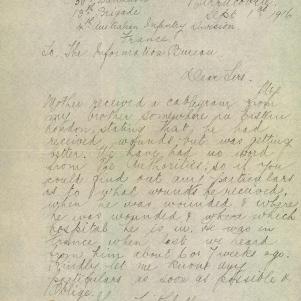 13th Brigade Sept 1st 1916
4th Australian Infantry Division
France
To, The Information Bureau
Dear Sirs.
My
Mother received a cablegram from
my brother somewhere in
London, stating that, he had
received wounds, but was getting
better. We have had no word
from the Authorities, so if you
could find out any particulars
as to what wounds he received,
when he was wounded & where
he was wounded & which
hospital he is in. He was in
France when last we heard
from him about 6 or 7 weeks ago.
Kindly let me know any
particulars as soon as possible &
oblige